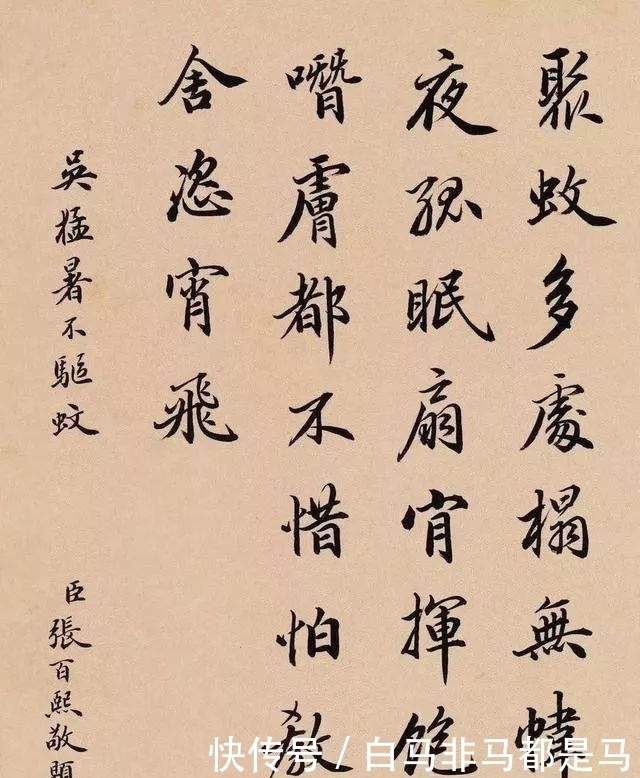 聚蚊多處榻無幃
夜孤眠扇肎揮飽
噆膚都不惜怕教
舍恣宵飛
吳猛暑不驅蚊
臣張百熙敬題
快传号 / 白马非马都是马